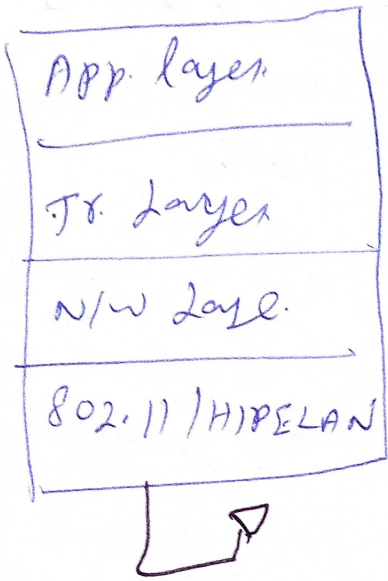 App. layer
Tr. Layer
N/W Laye.
802.11/HIPELAN